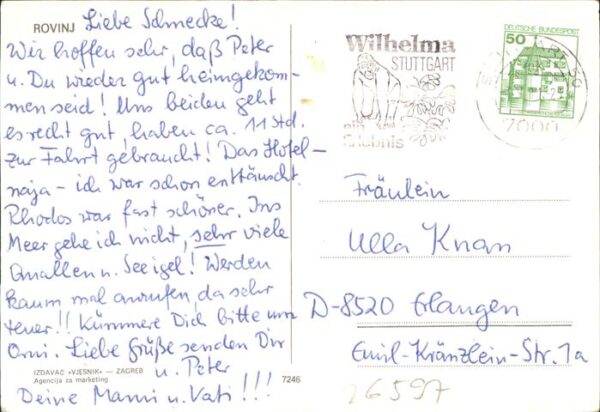 ROVINJ
Liebe Schmecke!
Wir hoffen sehr, daß Peter
u. Du wieder gut heimgekom-
men seid! Uns beiden geht
es recht gut, haben ca. 11 Std.
zur Fahrt gebraucht! Das Hotel -
naja - ich war schon enttäuscht.
Rhodos war fast schöner. Ins
Meer gehe ich nicht, sehr viele
Quallen u. Seeigel! Werden
kaum mal anrufen, da sehr
teuer!! Kümmere Dich bitte um
Omi. Liebe Grüße senden Dir
u. Peter
Deine Mami u. Vati!!!
IZDAVAČ »VJESNIK« — ZAGREB
Agencija za marketing
7246
Wilhelma
STUTTGART
ein
Erlebnis
7000
50
DEUTSCHE BUNDESPOST
Fräulein
Ulla Knan
D-8520 Erlangen
Emil-Kränzlein-Str. 1a
26597